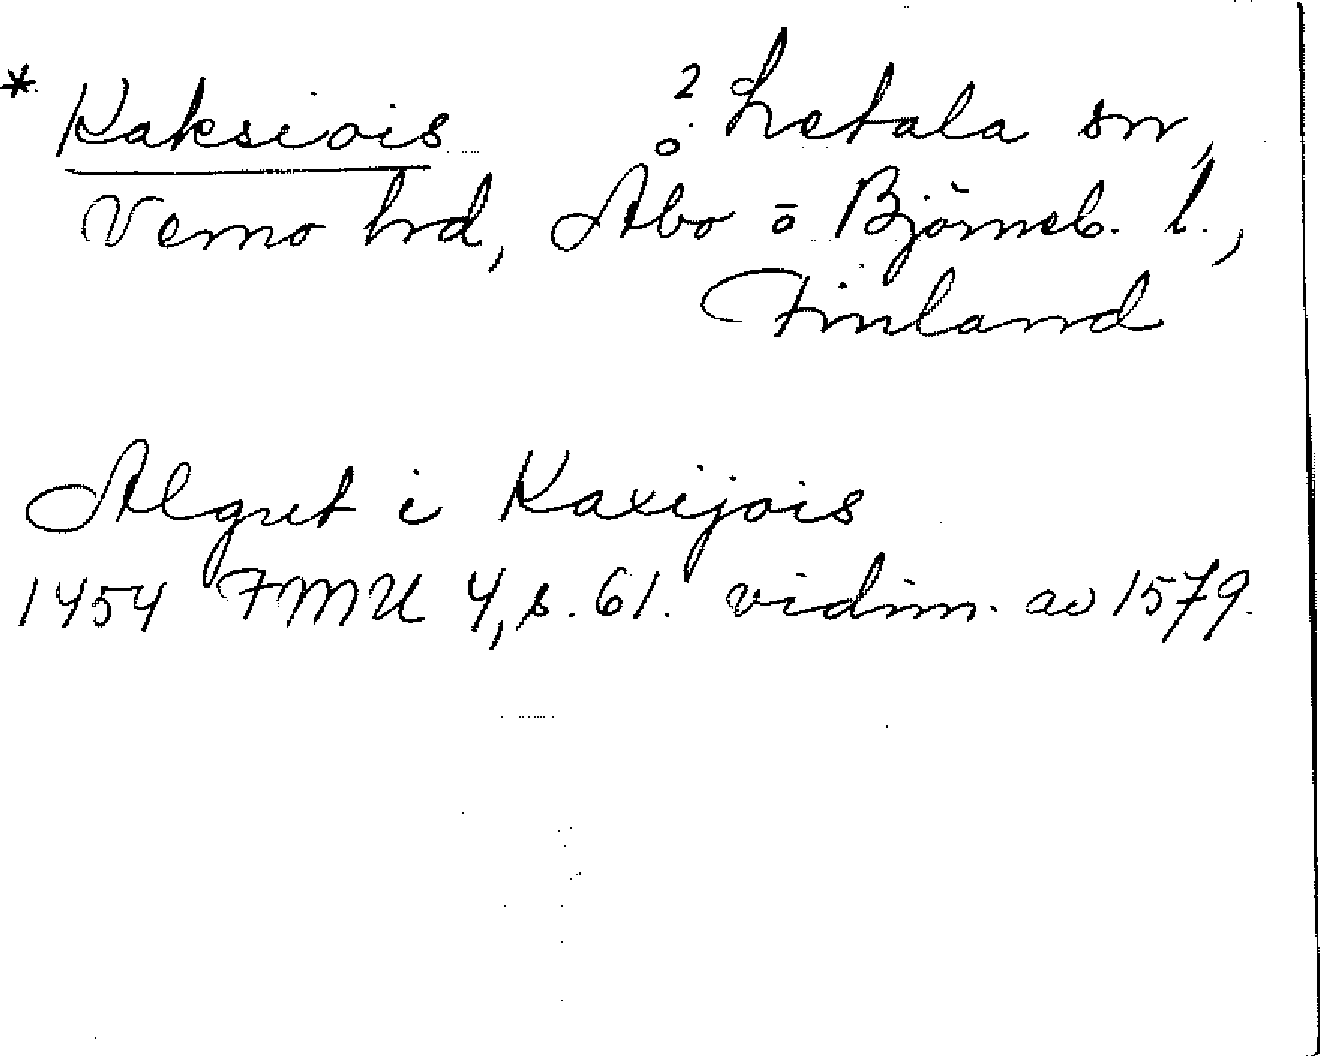 * Kaksiois ² Letala sn,
Vemo hd, Åbo o Björneb. l.,
Finland
Algut i Kaxijois
1454 FMU 4, s. 61. vidim. av 1579.